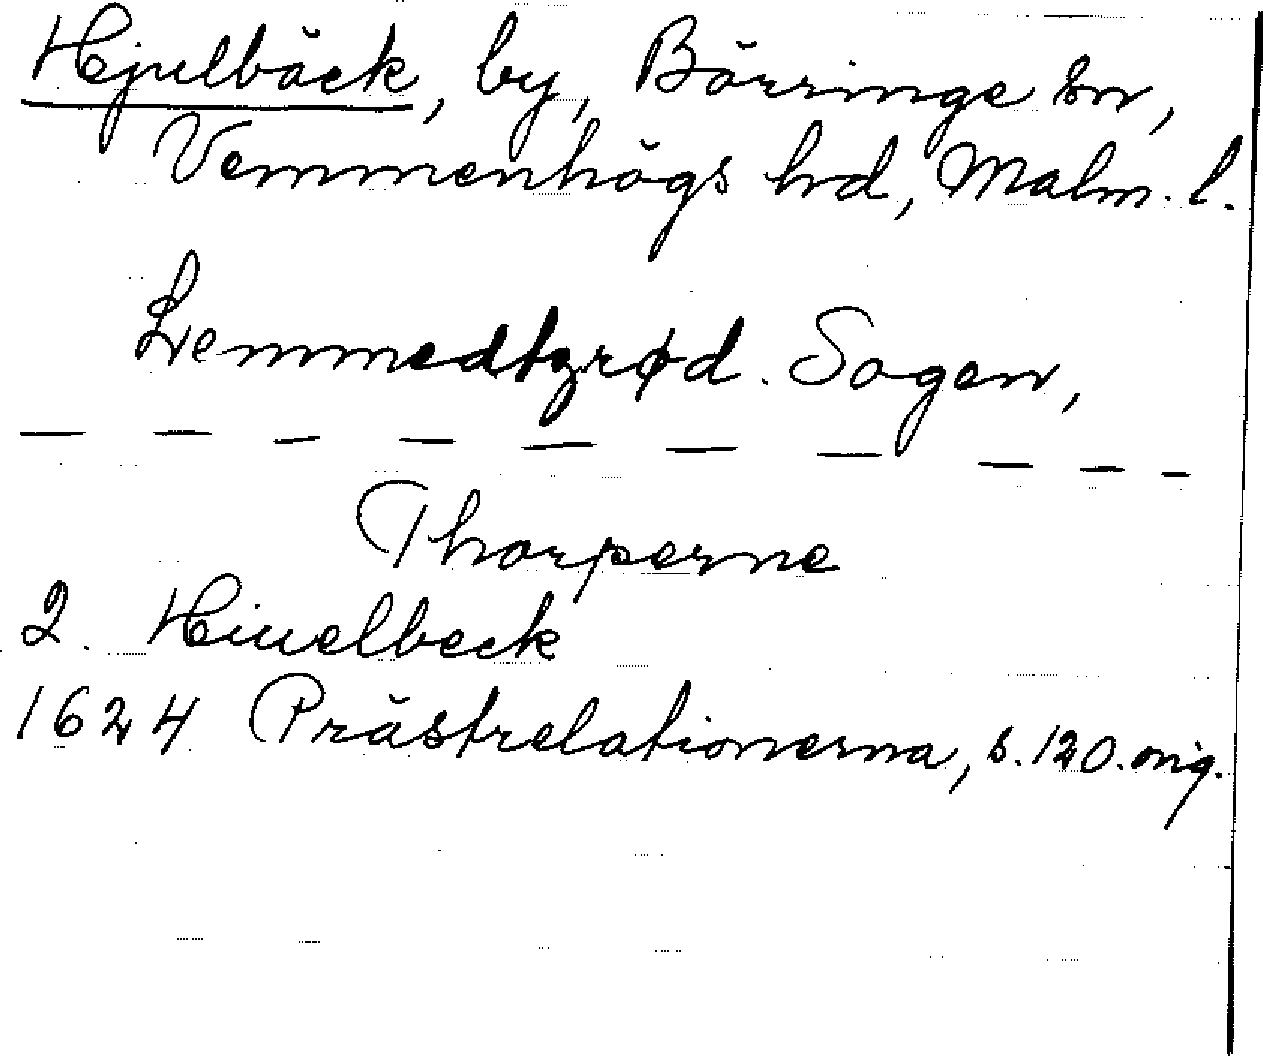 Hjulbäck, by, Börringe sn,
Vemmenhögs hd, Malm. l.
Lemmedtzrød. Sogen,
— — — — — — — — — —
Thorperne
2. Hiuelbeck
1624 Prästrelationerna, s. 120. orig.